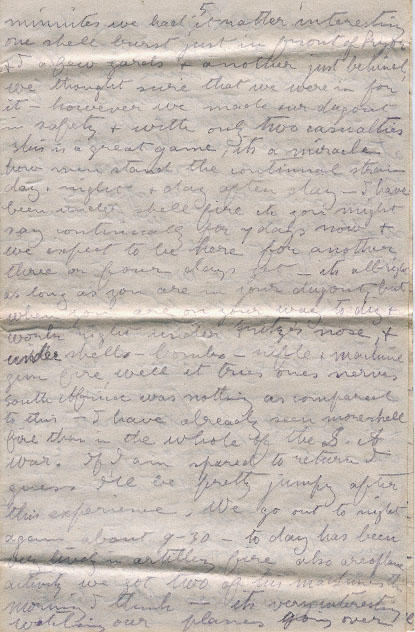 5
minnutes we had it rather interesting
one shell burst just in front of
& I a few yards & another just behind
we thought sure that we were in for
it - however we made our dugout
in safety & with only two casualties
this is a great game, its a miracle
how men stand the continual strain
day & night & day after day - I have
been under shell fire it you might
say continually for 9 days now &
we expect to be here for another
three or four days yet - its allright
as long as you are in your dugout, but
when you are on your way to dig &
work right under Fritzes nose, &
under shells - bombs - rifle & machine
gun fire well it tries ones nerves
South Africa was nothing as compared
to this - I have already seen more shell
fire than in the whole of the S. A
war. If I am spared to return I
guess I'll be pretty jumpy after
this experience. We go out to night
again about 9-30 - to day has been
lively in artillery fire also areoplane
activity we got two of his machines this
morning I think - its very interesting
watching our planes going over